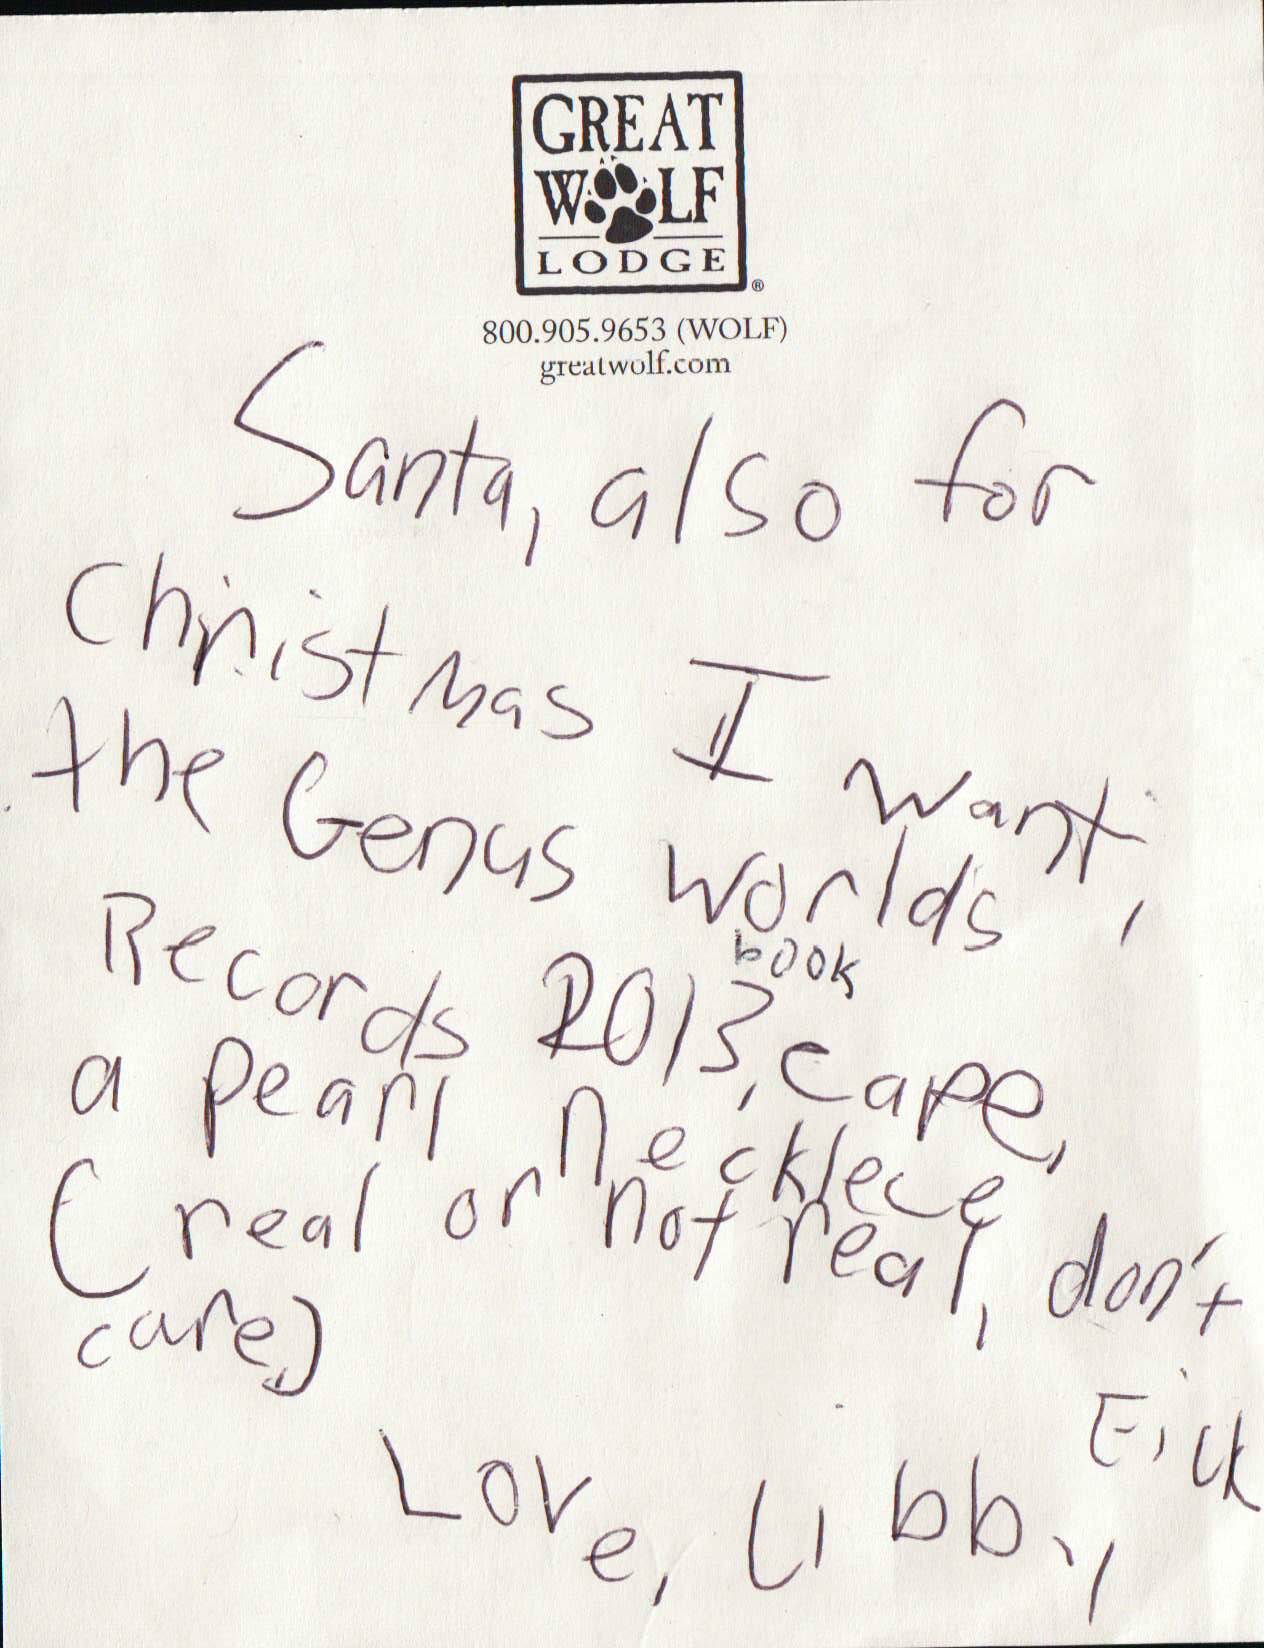 GREAT
WOLF
LODGE®
800.905.9653 (WOLF)
greatwolf.com
Santa, also for
Christmas I want,
the Genus worlds
book
Records 2013, cape,
a pearl necklece
(real or not real, don't
care)
Love, Libby
Eick